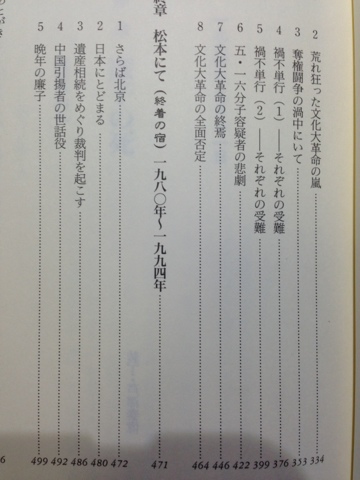 2 荒れ狂った文化大革命の嵐 334
3 奪権闘争の渦中にいて 353
4 禍不単行(1)――それぞれの受難 376
5 禍不単行(2)――それぞれの受難 399
6 五・一六分子容疑者の悲劇 422
7 文化大革命の終焉 446
8 文化大革命の全面否定 464
終章 松本にて(終着の宿)一九八〇年〜一九九四年 471
1 さらば北京 472
2 日本にとどまる 480
3 遺産相続をめぐり裁判を起こす 486
4 中国引揚者の世話役 492
5 晩年の廉子 499